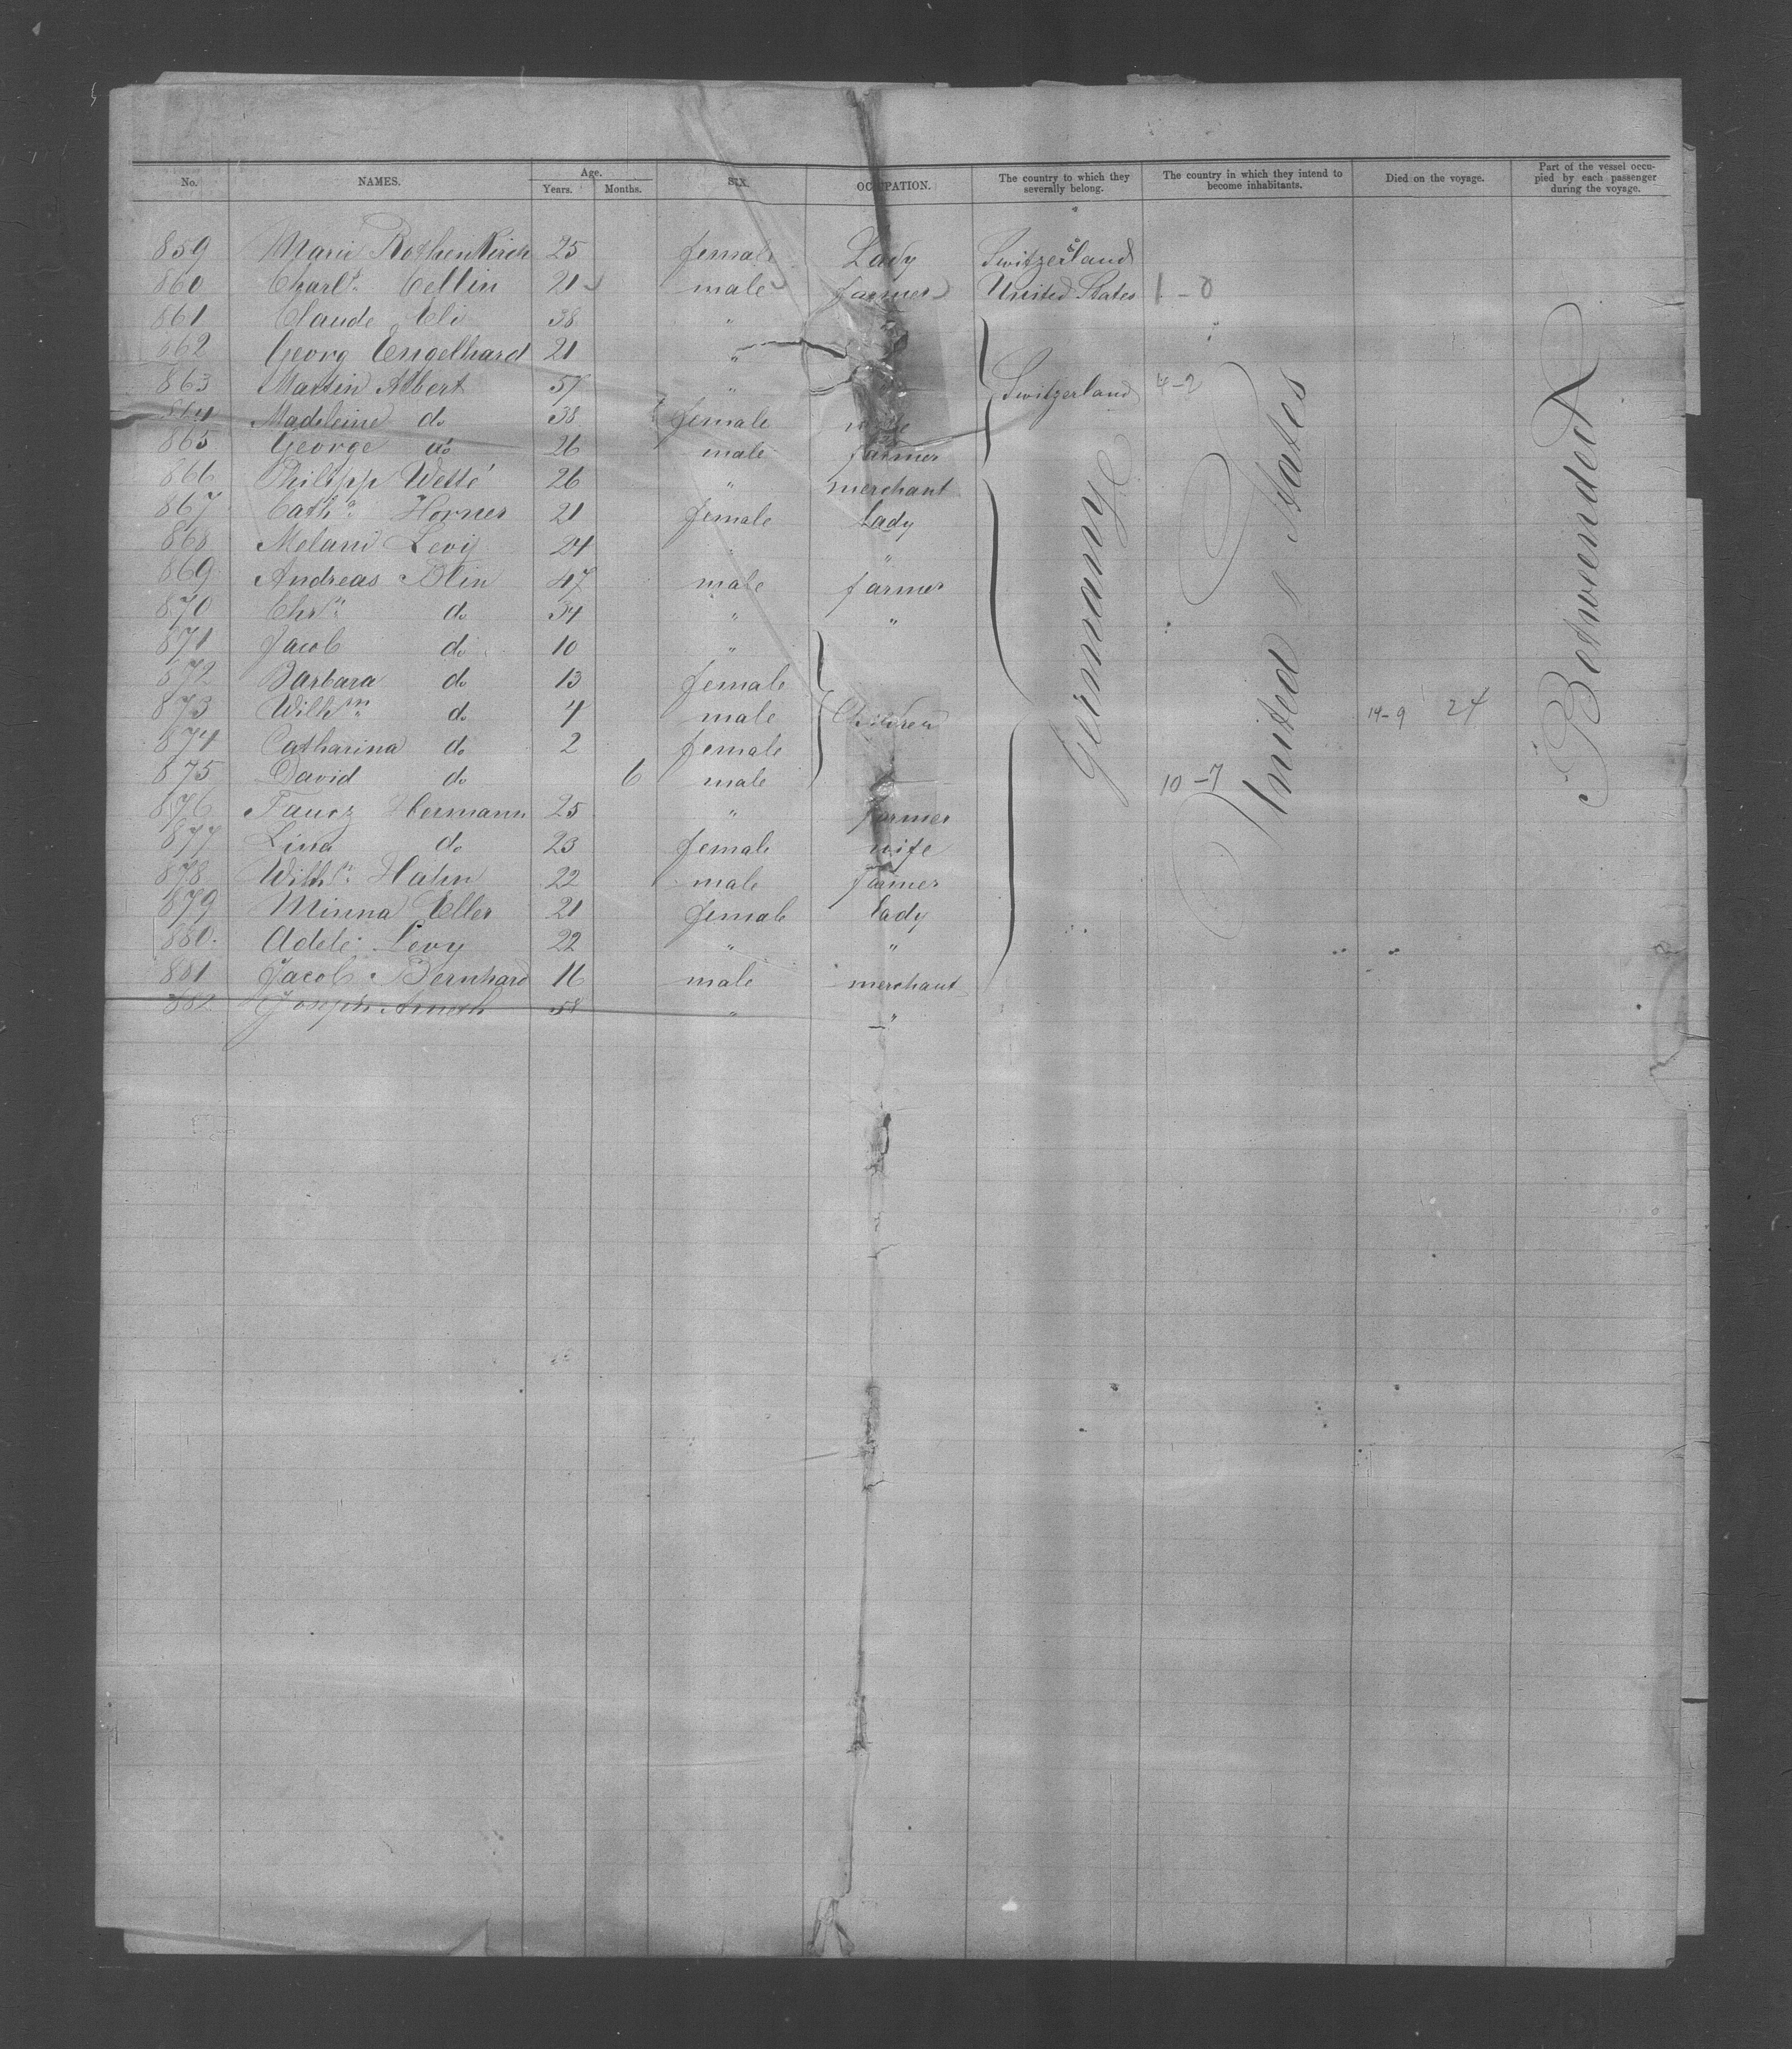 No. NAMES. Age. Years. Months. SEX. OCCUPATION. The country to which they severally belong. The country in which they intend to become inhabitants. Died on the voyage. Part of the vessel occupied by each passenger during the voyage.
859 Marie Rothenkirch 25 female Lady Switzerland
860 Charlt. Cellin 21 male farmer United States 1 - 0
861 Claude Eli 38 "
862 Georg Engelhard 21 "
863 Martin Albert 57 " Switzerland 4-2
864 Madeleine do 38 female wife
865 George do 26 male farmer
866 Philipp Wette 26 " merchant
867 Catha. Horner 21 female Lady
868 Melani Levy 24 " "
869 Andreas Blin 47 male farmer
870 Chrn. do 34 " "
871 Jacob do 10 "
872 Barbara do 13 female
873 Wilhm. do 4 male Children 14-9 24
874 Catharina do 2 female
875 David do 6 male 10-7
876 Hermann 25 " farmer
877 Lina do 23 female wife
878 Wilhm. Hahn 22 male farmer
879 Minna Eller 21 female Lady
880. Adele Levy 22 " "
881 Jacob Bernhard 16 male merchant
882 Joseph 58 " "
Germany
United States
Betweendeck